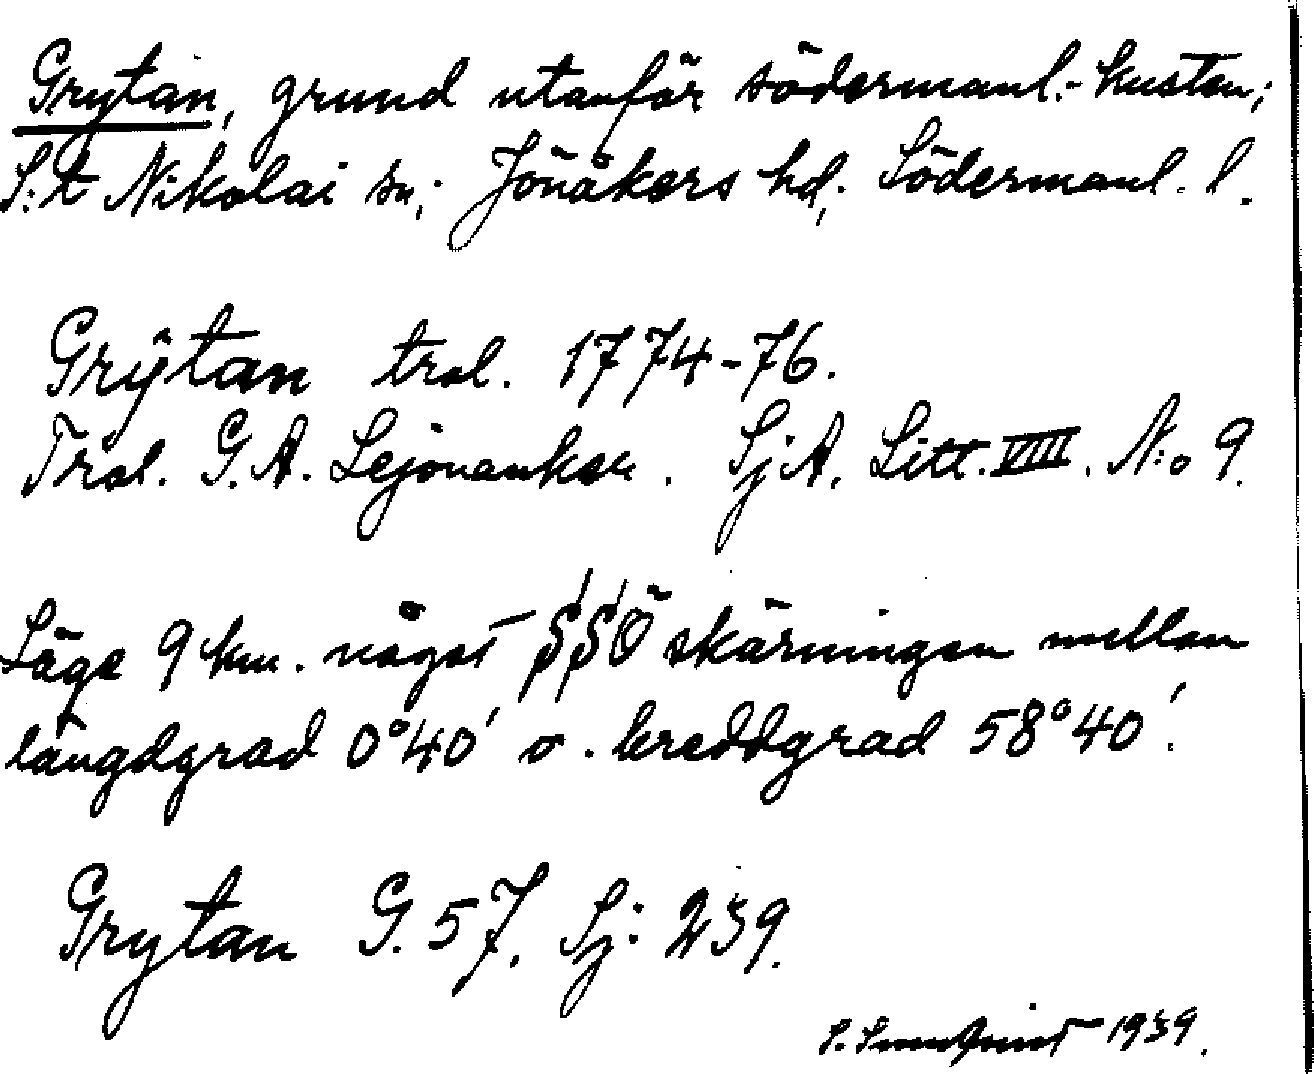 Grytan, grund utanför södermanl.-kusten;
S:t Nikolai sn; Jönåkers hd; Södermanl. l.
Grÿtan trol. 1774-76.
Trol. G. A. Lejonanker. SjA. Litt. VIII. N:o 9.
Läge 9 km. något SSÖ skärningen mellan
längdgrad 0°40′ o. breddgrad 58°40′.
Grytan G. 57. Sj: 239.
S. 1939.